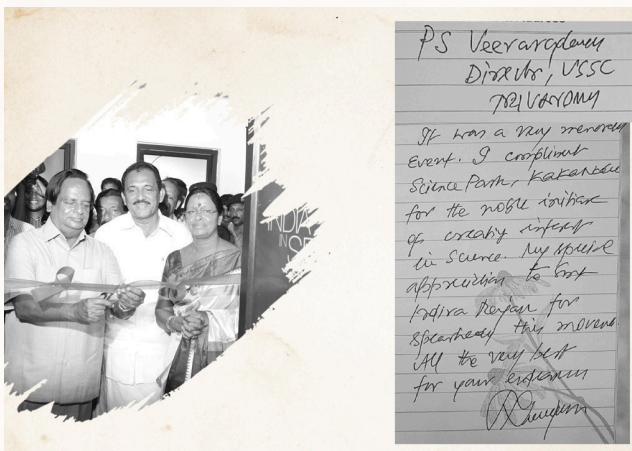 INDIA
IN
PS Veeraraghavan
Director, VSSC
TRIVANDRUM
It was a very memorable
Event. I compliment
Science Park, Kakanadu
for the noble initiative
of creating interest
in Science. My special
appreciation to Smt
Indira Rajan for
Spearheading this movement.
All the very best
for your endeavours